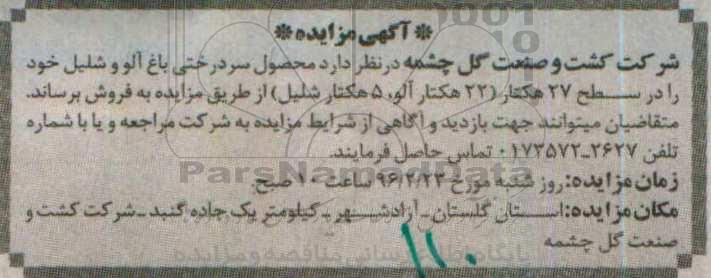 * آگهی مزایده *
شرکت کشت و صنعت گل چشمه درنظر دارد محصول سردرختی باغ آلو و شلیل خود
را در سطح ۲۷ هکتار (۲۲ هکتار آلو، ۵ هکتار شلیل) از طریق مزایده به فروش برساند.
متقاضیان میتوانند جهت بازدید و آگاهی از شرایط مزایده به شرکت مراجعه و یا با شماره
تلفن ۲۶۲۷-۰۱۷۳۵۷۲ تماس حاصل فرمایند.
ParsNamadData
زمان مزایده: روز شنبه مورخ ۹۶/۲/۲۳ ساعت ۱۰ صبح.
مکان مزایده: استان گلستان - آزادشهر - کیلومتر یک جاده گنبد - شرکت کشت و
صنعت گل چشمه
پایگاه اطلاع رسانی مناقصه و مزایده